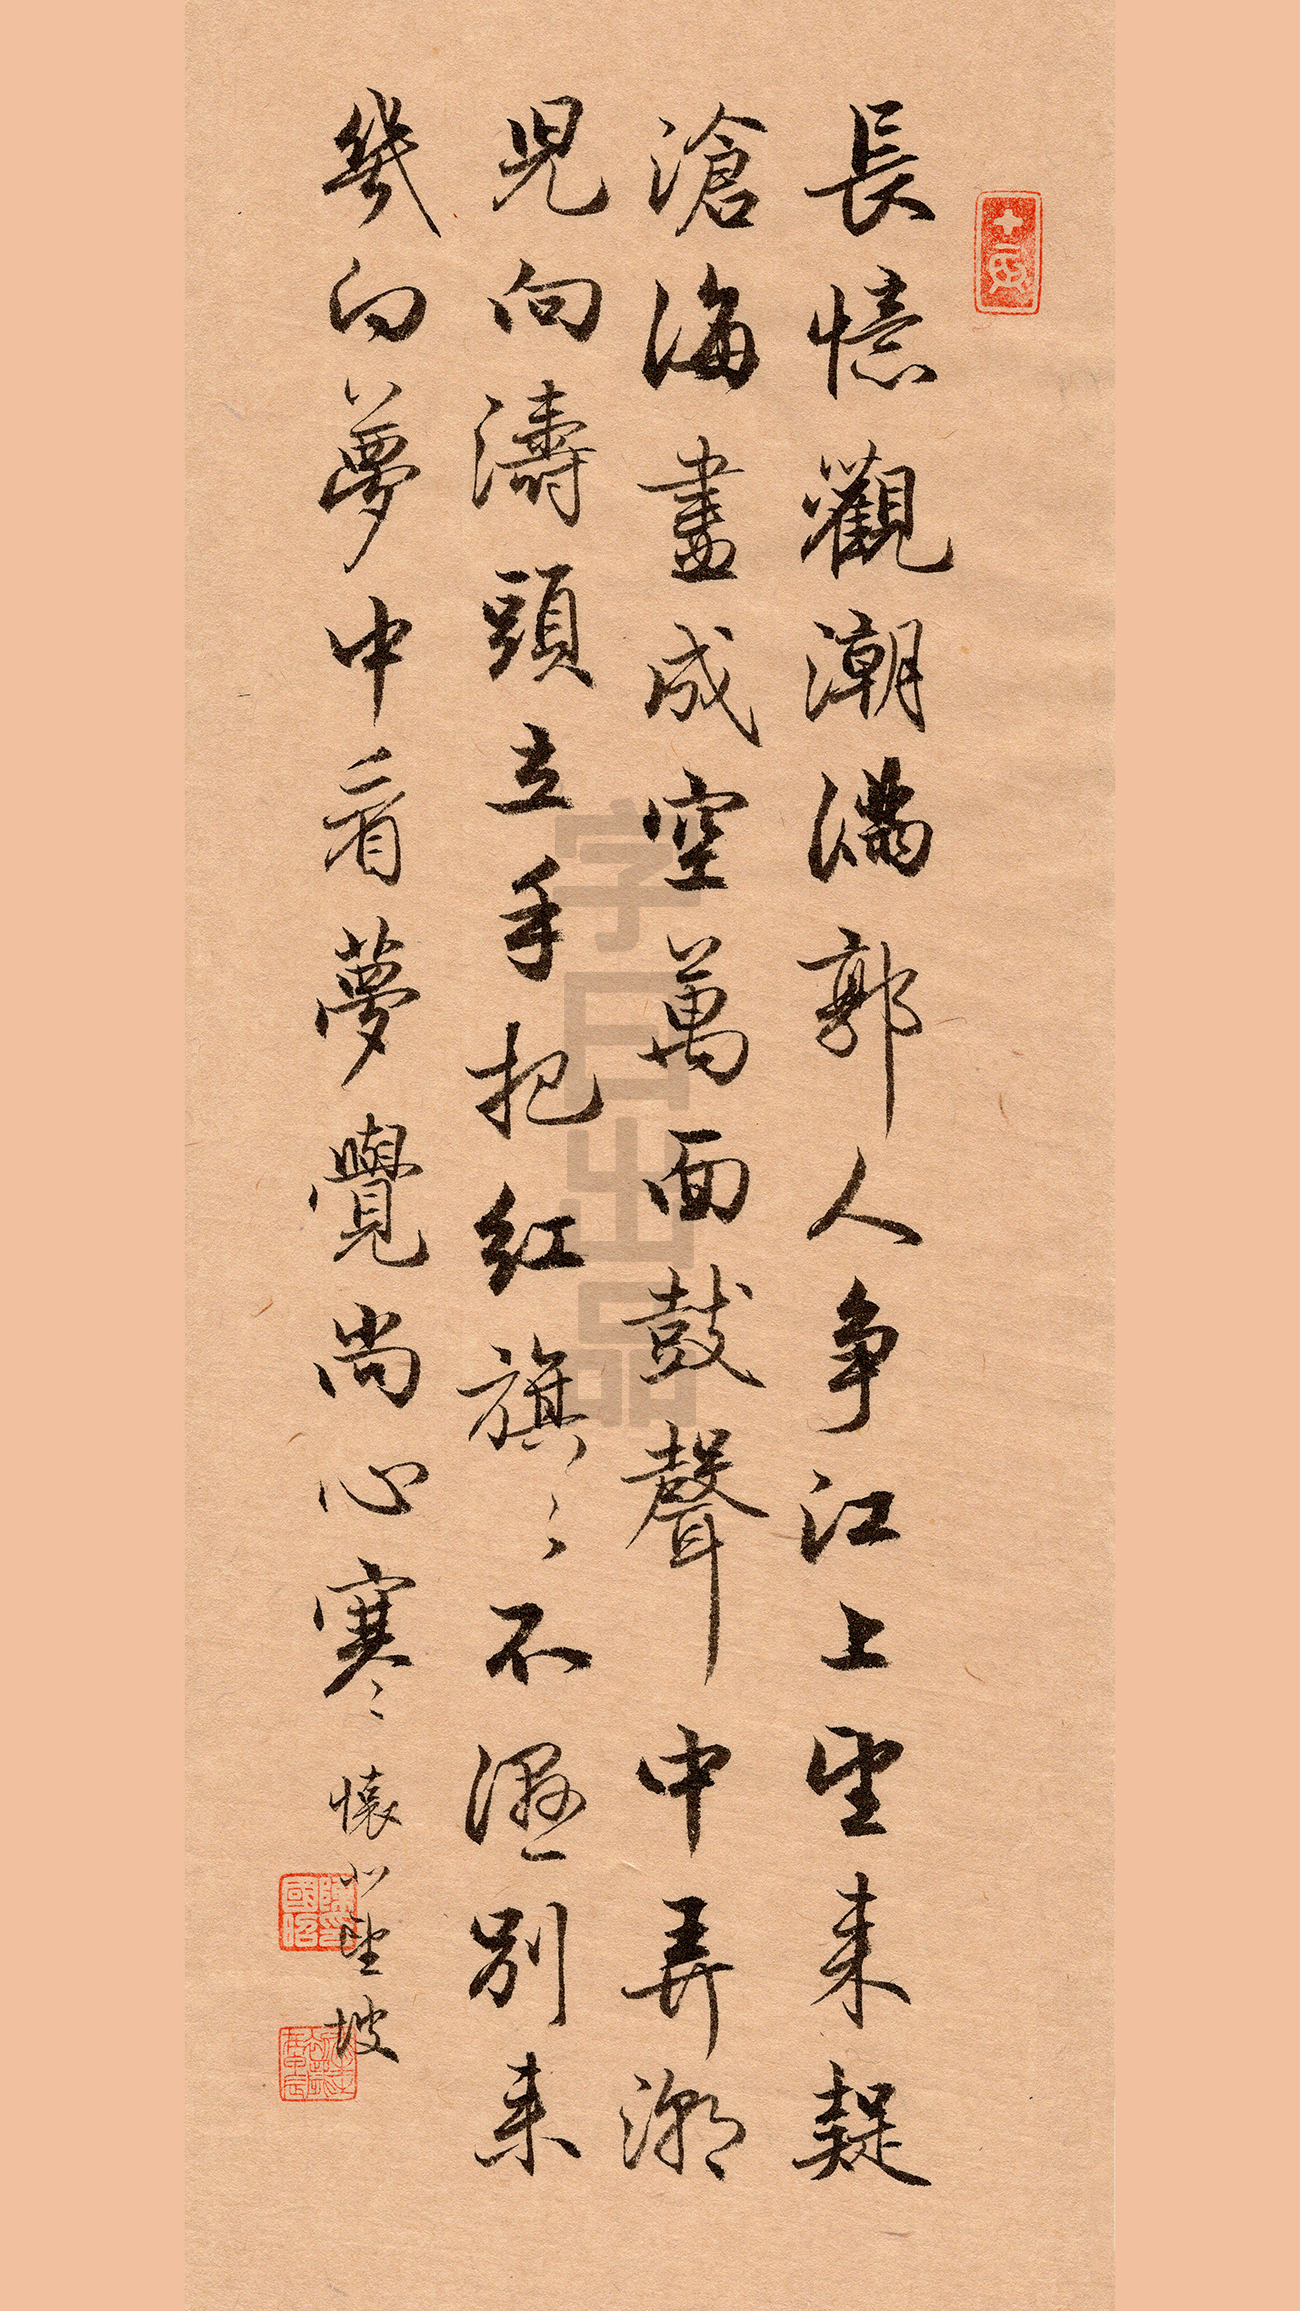 長憶觀潮滿郭人争江上望来疑
滄海盡成空萬面鼓聲中弄潮
児向濤頭立手把红旗旗不濕別来
幾向夢中看夢覺尚心寒
懐望坡
字口出品